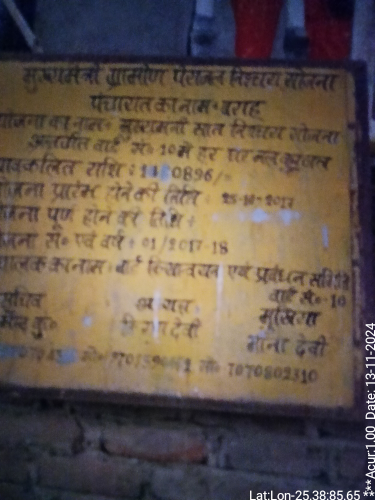 मुख्यमंत्री ग्रामीण पेयजल निश्चय योजना
पंचायत का नाम- बराह
योजना का नाम- मुख्यमंत्री सात निश्चय योजना
अन्तर्गत वार्ड सं० 10 में हर घर नल का जल
प्राक्कलित राशि : 0896/=
प्रारंभ होने की तिथि : 25-10-2017
पूर्ण होने की तिथि :
सं० एवं वर्ष : 01/2017-18
का नाम : वार्ड क्रियान्वयन एवं प्रबंधन समिति
वार्ड सं०-10
सचिव अध्यक्ष मुखिया
कु० देवी मीना देवी
मो० मो० 7070802310
Lat:Lon-25.38:85.65
***Acur:1.00 Date: 13-11-2024